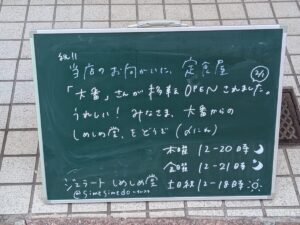 祝!!
当店のお向かいに、定食屋
「大番」さんが移転OPENされました。
2/1
うれしい！みなさま、大番からの
しめしめ堂、をどうぞ
木曜 12-20時
金曜 12-21時
土日祝 12-18時
ジェラート しめしめ堂
@simesimedo